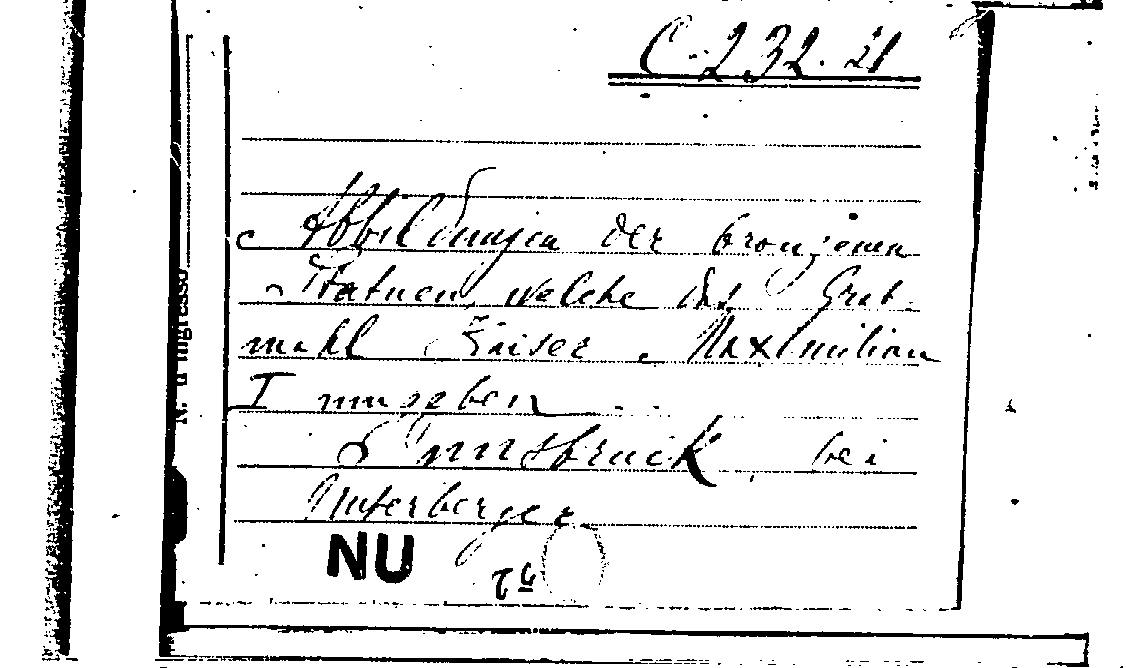 C-232.21
Abbildungen der bronzenen
Statuen, welche das Grab-
mahl Kaiser Maximilian
I umgeben
Innsbruck bei
Unterberger
NU
N. d'ingresso